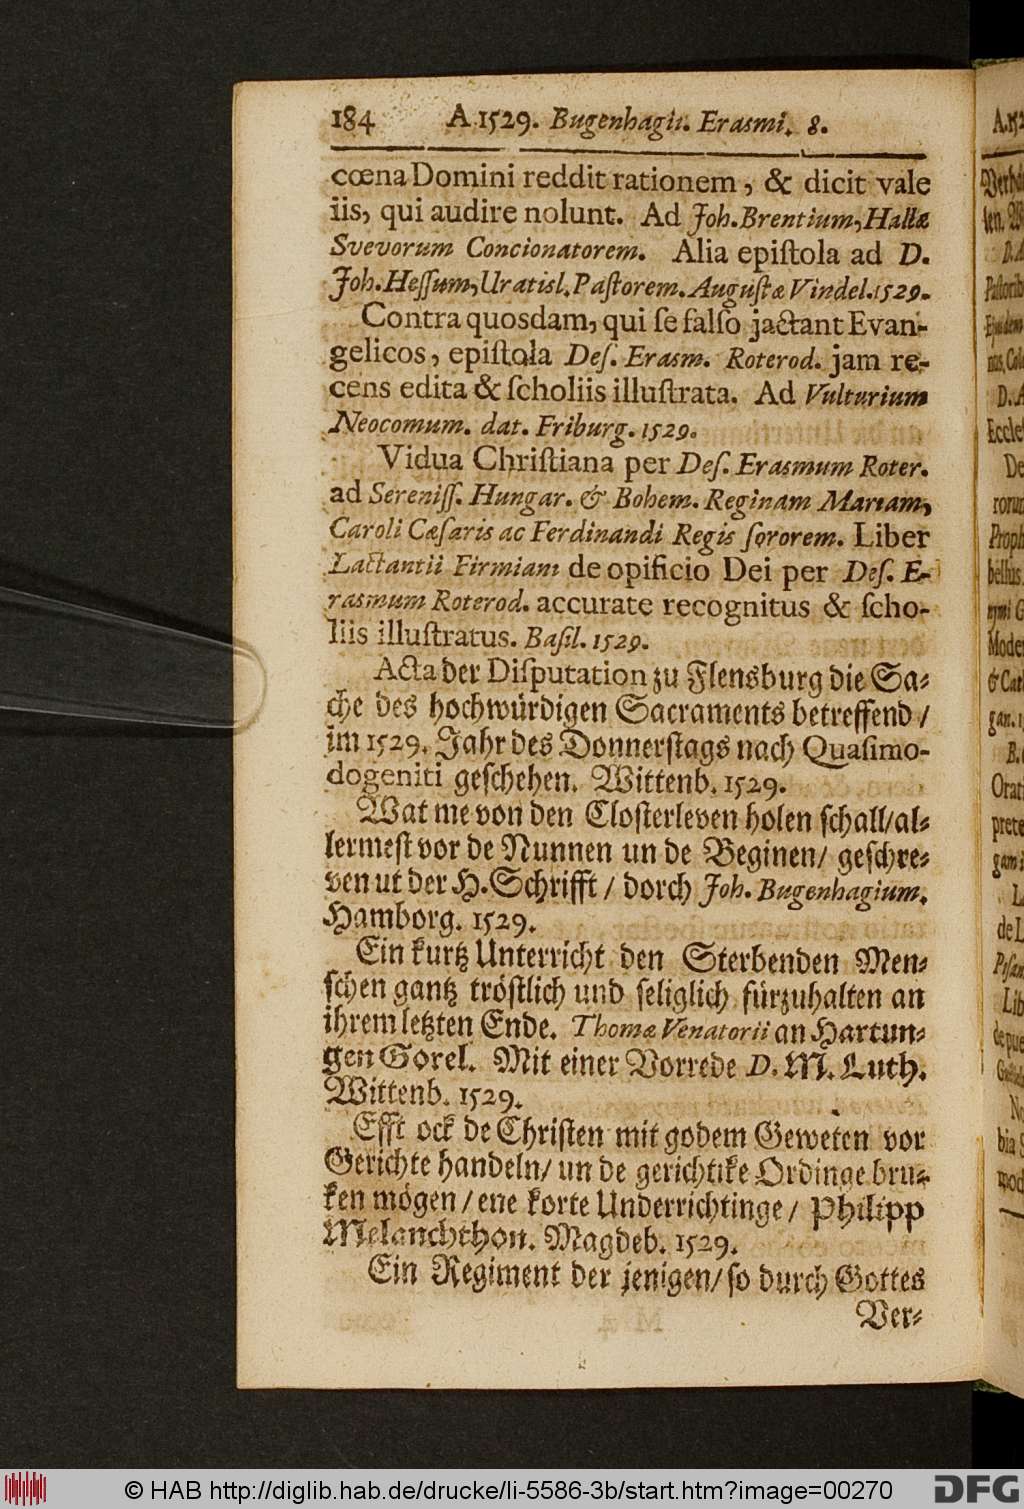 184 A. 1529. Bugenhagii. Erasmi. 8.
cœna Domini reddit rationem, & dicit vale
iis, qui audire nolunt. Ad Joh. Brentium, Hallæ
Svevorum Concionatorem. Alia epiſtola ad D.
Joh. Heſſum, Uratisl. Paſtorem. Auguſtæ Vindel. 1529.
Contra quosdam, qui ſe falſo jactant Evan-
gelicos, epiſtola Deſ. Erasm. Roterod. jam re-
cens edita & ſcholiis illuſtrata. Ad Vulturium
Neocomum. dat. Friburg. 1529.
Vidua Chriſtiana per Deſ. Erasmum Roter.
ad Sereniſſ. Hungar. & Bohem. Reginam Mariam,
Caroli Cæſaris ac Ferdinandi Regis ſororem. Liber
Lactantii Firmiani de opificio Dei per Deſ. E-
rasmum Roterod. accurate recognitus & ſcho-
liis illuſtratus. Baſil. 1529.
Acta der Diſputation zu Flensburg die Sa-
che des hochwürdigen Sacraments betreffend /
im 1529. Jahr des Donnerſtags nach Quaſimo-
dogeniti geſchehen. Wittenb. 1529.
Wat me von den Cloſterleven holen ſchall/ al-
lermeſt vor de Nunnen un de Beginen/ geſchre-
ven ut der H. Schrifft / dorch Joh. Bugenhagium.
Hamborg. 1529.
Ein kurtz Unterricht den Sterbenden Men-
ſchen gantz tröſtlich und ſeliglich fürzuhalten an
ihrem letzten Ende. Thomæ Venatorii an Hartun-
gen Gorel. Mit einer Vorrede D. M. Luth.
Wittenb. 1529.
Efft ock de Chriſten mit godem Geweten vor
Gerichte handeln/ un de gerichtike Ordinge bru-
ken mögen / ene korte Underrichtinge / Philipp
Melanchthon. Magdeb. 1529.
Ein Regiment der jenigen/ ſo durch Gottes
Ver-
© HAB http://diglib.hab.de/drucke/li-5586-3b/start.htm?image=00270
DFG